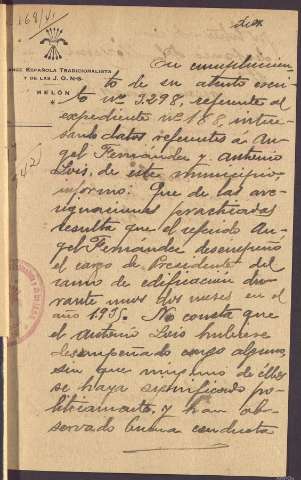 168/41
diez
ANGE ESPAÑOLA TRADICIONALISTA
Y DE LAS J.O.N-S.
MELÓN
En cumplimien
to de su atento escri
to nº 3.298, referente al
expediente nº 168, intere
sando datos referentes á An
gel Fernández y Antonio
Luis, de este municipio,
informo: Que de las ave
riguaciones practicadas
resulta que el referido An
gel Fernández desempeñó
el cargo de Presidente del
ramo de edificación du
rante unos dos meses en el
año 1935. No consta que
el Antonio Luis hubiere
desempeñado cargo alguno,
sin que ninguno de ellos
se haya significado po
líticamente, y han ob
servado buena conducta